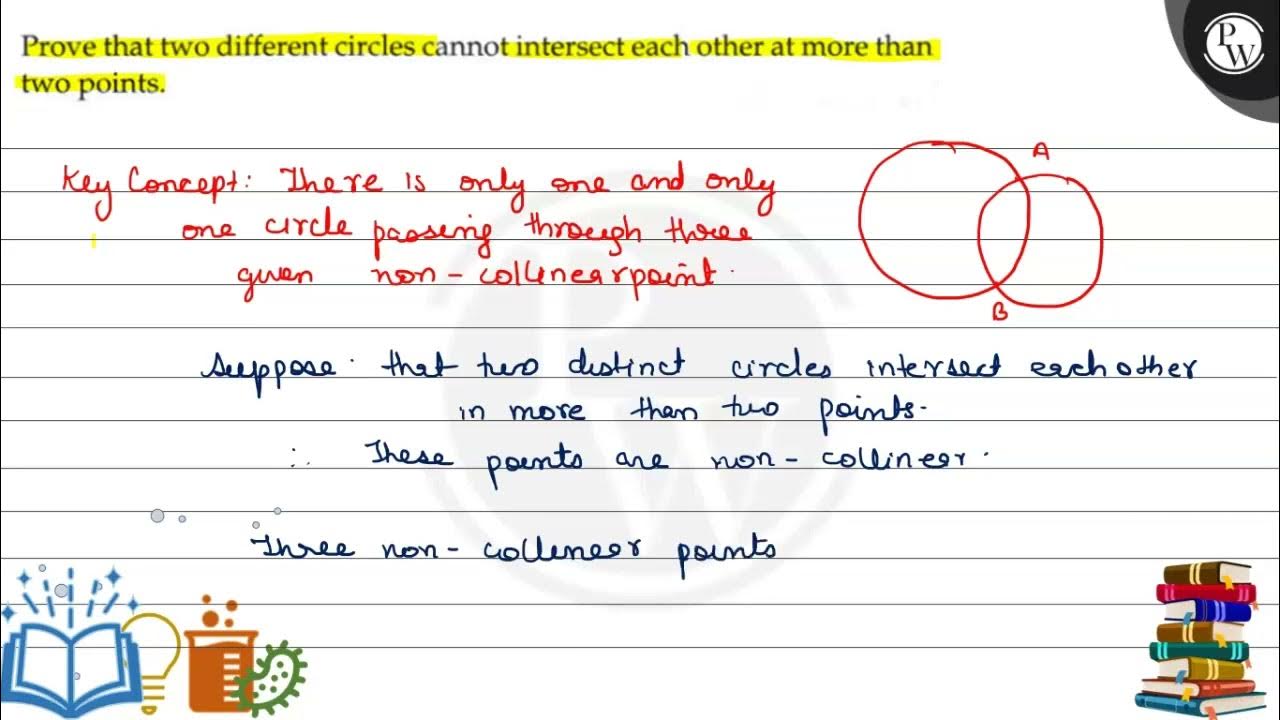 Prove that two different circles cannot intersect each other at more than
two points.
PW
Key Concept: There is only one and only
one circle passing through three
given non-collinear point.
A
B
Suppose that two distinct circles intersect each other
in more than two points.
∴ These points are non-collinear.
Three non-collineer points